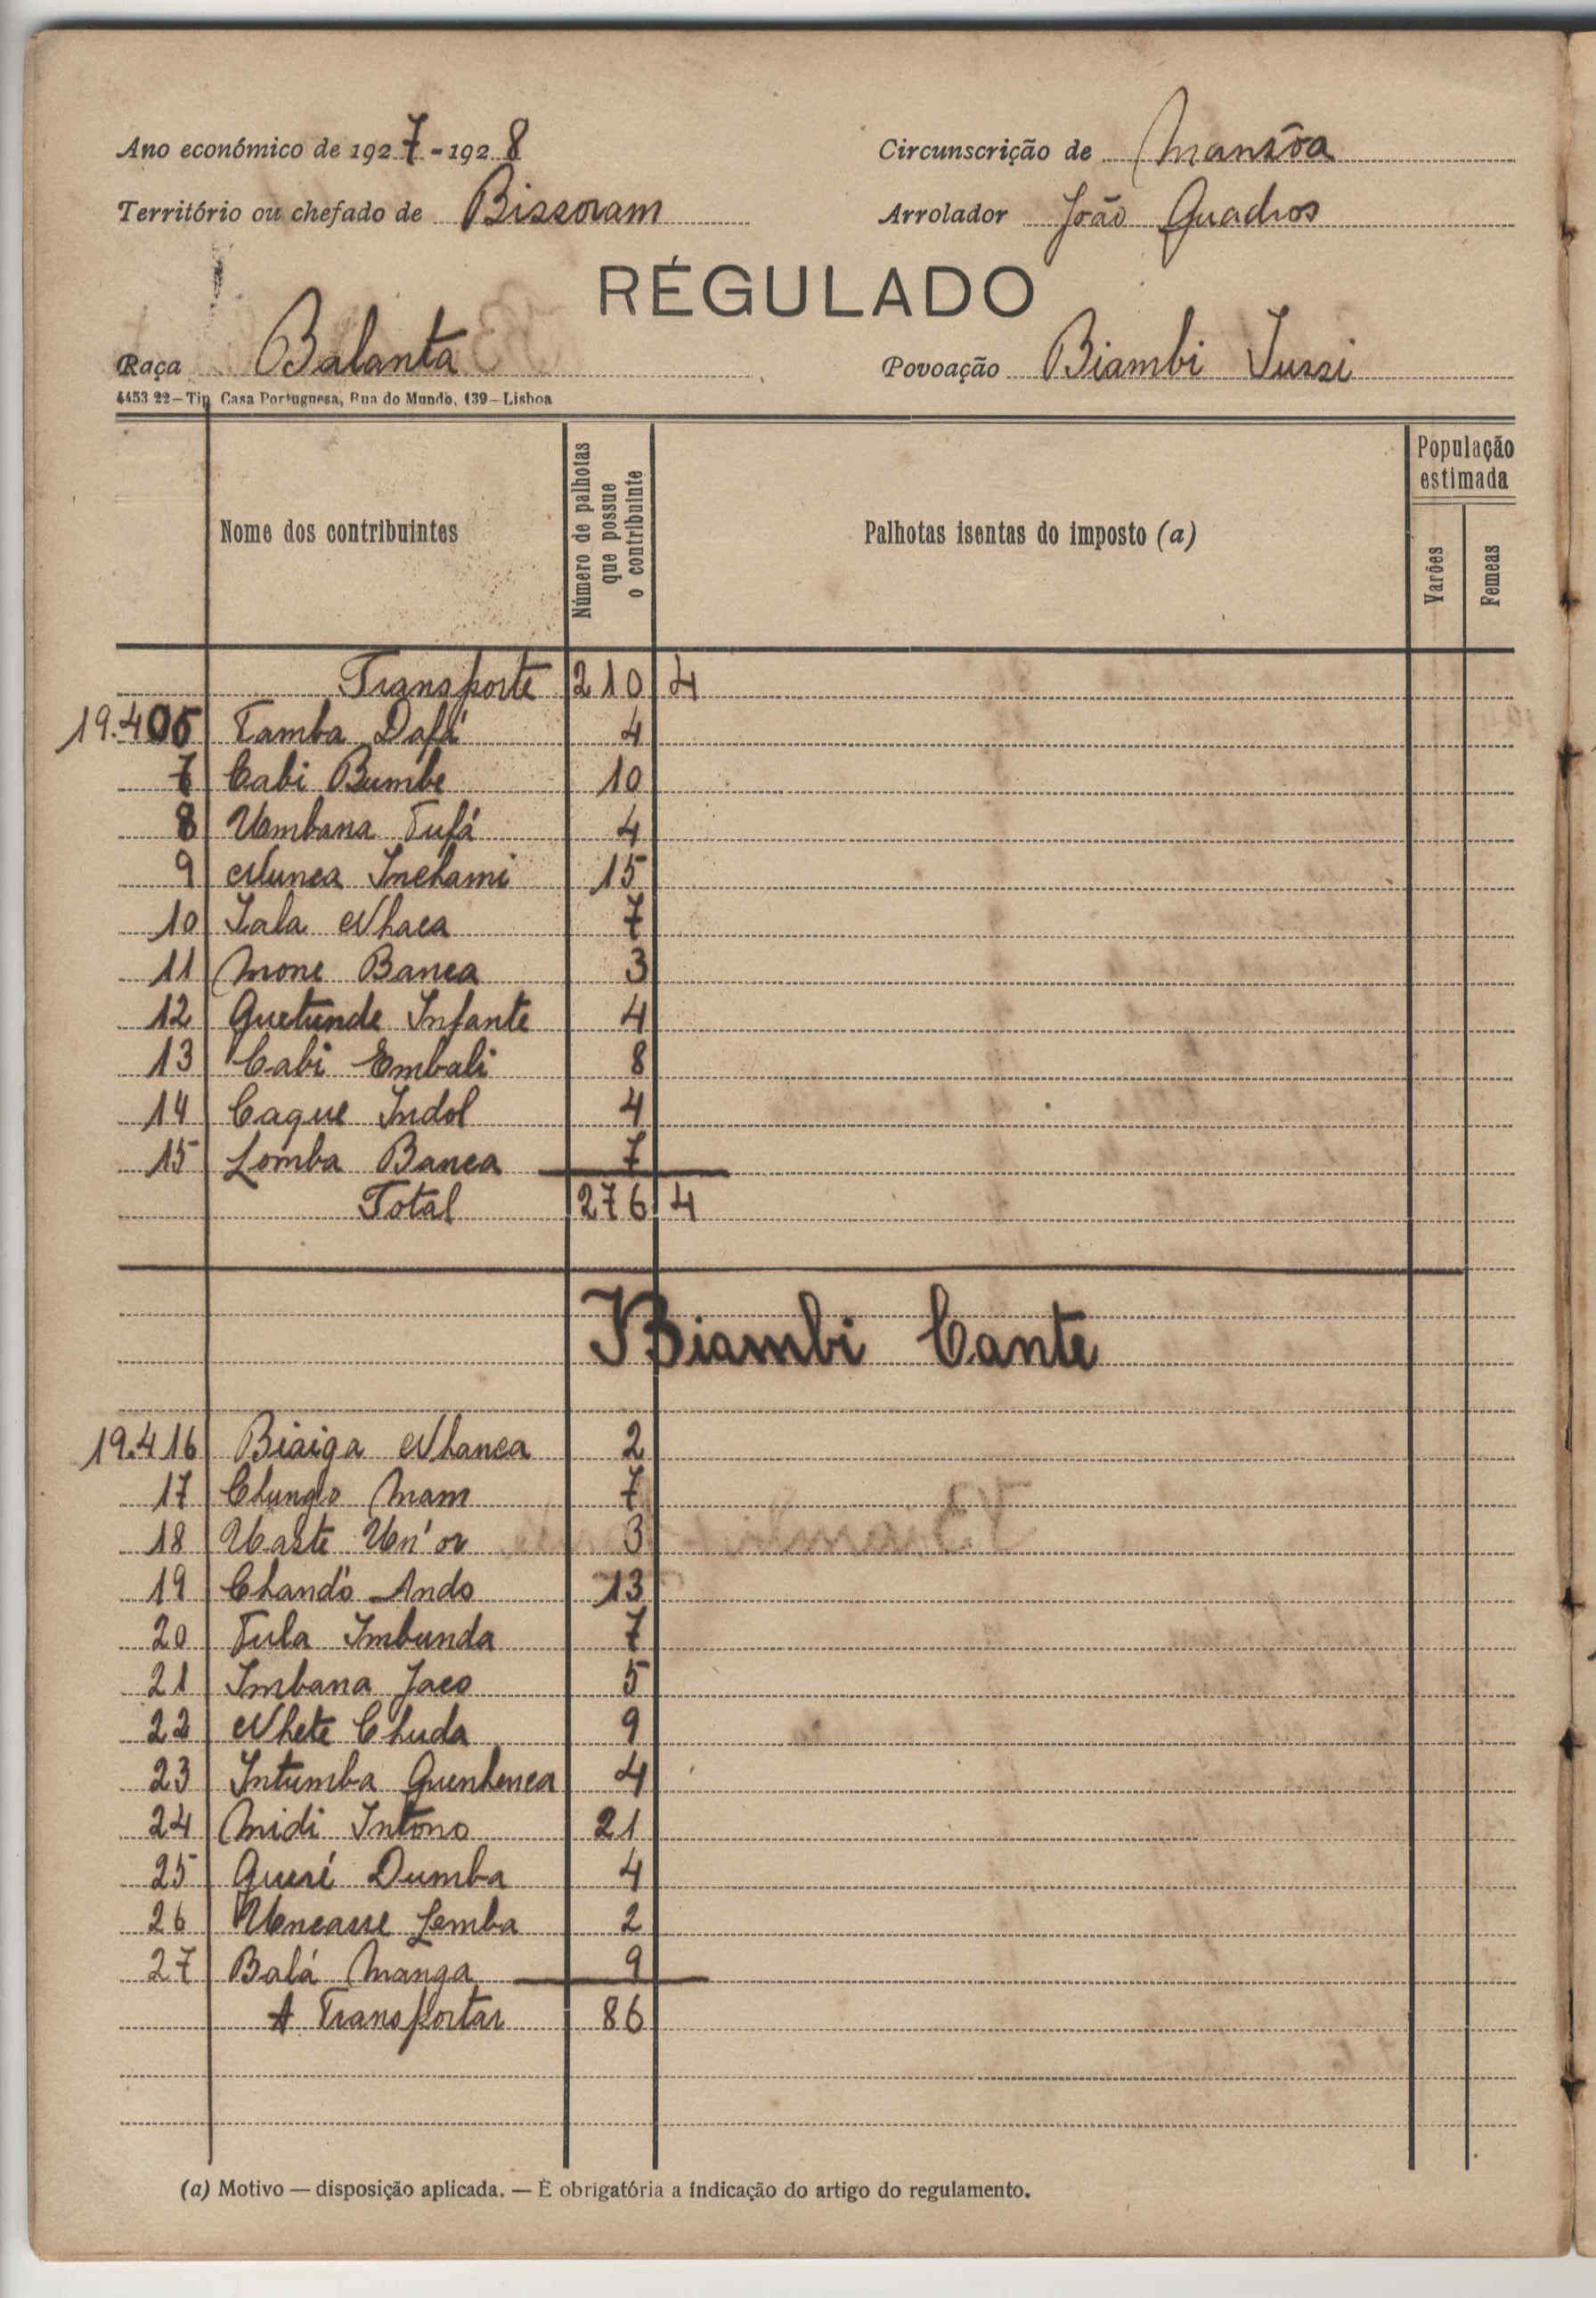 Ano económico de 1927-1928
Circunscrição de Mansôa
Território ou chefado de Bissoram
Arrolador João Quadros
RÉGULADO
Raça Balanta
Povoação Biambi Iussi
4453 22—Tip Casa Portuguesa, Rua do Mundo, 139—Lisboa
Nome dos contribuintes
Número de palhotas que possue o contribuinte
Palhotas isentas do imposto (a)
População estimada
Varões
Femeas
Transporte 210 4
19.405 Tamba Dafá 4
7 Cabi Bumbe 10
8 Umbana Tufá 4
9 Nunca Inchami 15
10 Iala Nhaca 7
11 Mone Banca 3
12 Quetunde Infante 4
13 Cabi Embali 8
14 Caque Indol 4
15 Lomba Banca 7
Total 276 4
Biambi Cante
19.416 Biaiga Nhanca 2
17 Chungo Mam 7
18 Uaste Un'or 3
19 Chandó Ando 13
20 Tula Imbunda 7
21 Imbana Jaco 5
22 Nhete Chuda 9
23 Intumba Quenhenca 4
24 Midi Intono 21
25 Queré Dumba 4
26 Uncasse Lemba 2
27 Balá Manga 9
A Transportar 86
(a) Motivo — disposição aplicada. — É obrigatória a indicação do artigo do regulamento.